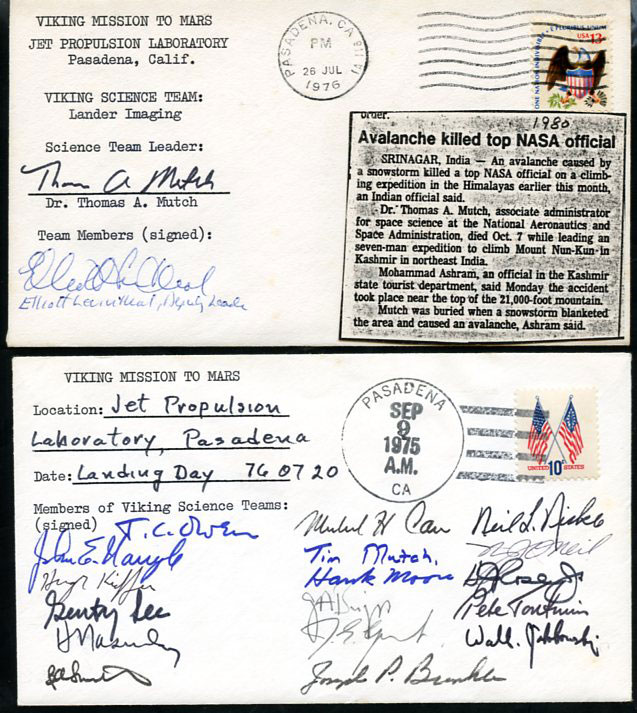 VIKING MISSION TO MARS
JET PROPULSION LABORATORY
Pasadena, Calif.
VIKING SCIENCE TEAM:
Lander Imaging
Science Team Leader:
Thomas A Mutch
Dr. Thomas A. Mutch
Team Members (signed):
Elliott Levinthal, Deputy Leader
PASADENA, CA 911
PM
26 JUL
1976
ONE NATION INDIVISIBLE
E PLURIBUS UNUM
USA 13c
order.
1980
Avalanche killed top NASA official
SRINAGAR, India — An avalanche caused by
a snowstorm killed a top NASA official on a climb-
ing expedition in the Himalayas earlier this month,
an Indian official said.
Dr. Thomas A. Mutch, associate administrator
for space science at the National Aeronautics and
Space Administration, died Oct. 7 while leading an
seven-man expedition to climb Mount Nun-Kun in
Kashmir in northeast India.
Mohammad Ashram, an official in the Kashmir
state tourist department, said Monday the accident
took place near the top of the 21,000-foot mountain.
Mutch was buried when a snowstorm blanketed
the area and caused an avalanche, Ashram said.
VIKING MISSION TO MARS
Location: Jet Propulsion
Laboratory, Pasadena
Date: Landing Day 76 07 20
Members of Viking Science Teams:
(signed)
PASADENA
SEP
9
1975
A.M.
CA
UNITED 10c STATES
T. C. Owen
John E. Naugle
Hugh Kieffer
Gentry Lee
H Masursky
Michael H Carr
Tim Mutch
Hank Moore
Joseph P.